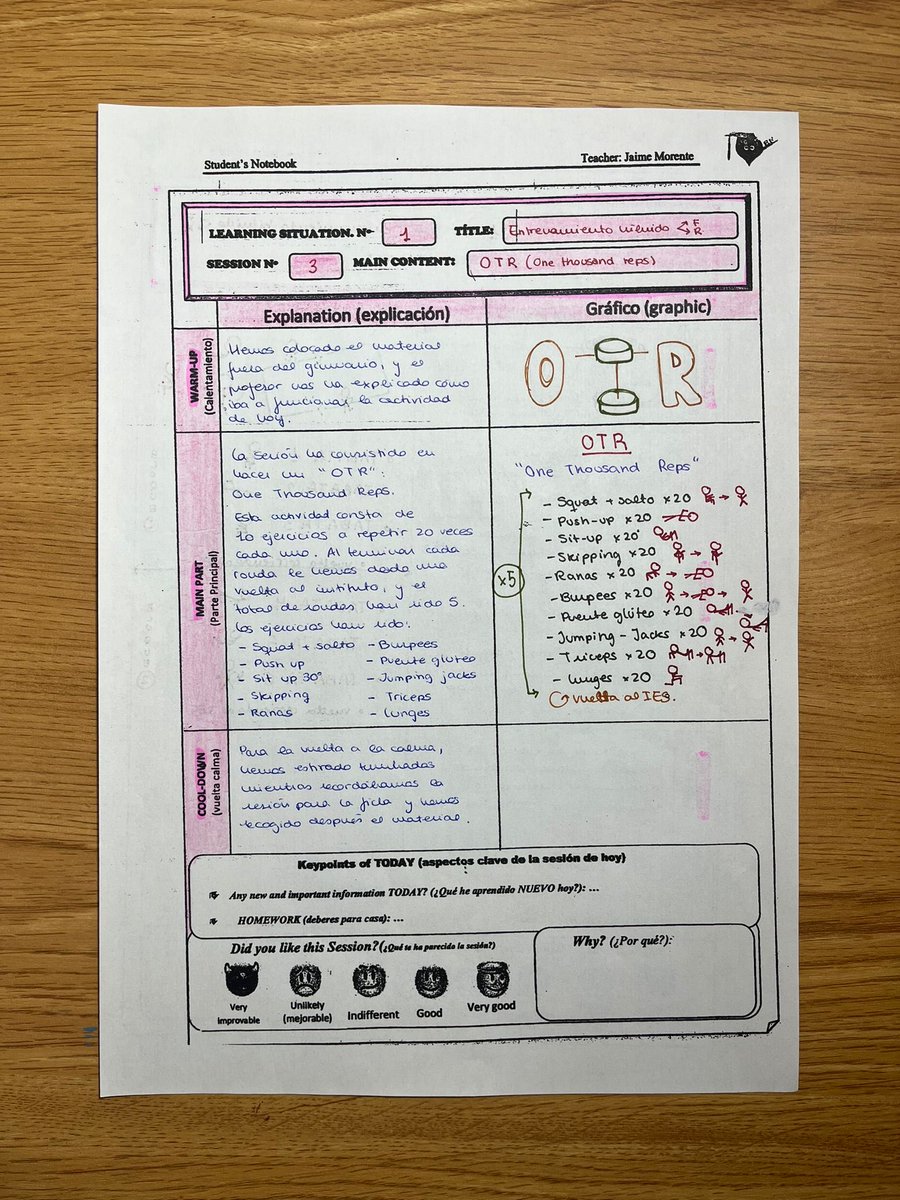 Student's Notebook
Teacher: Jaime Morente
LEARNING SITUATION. Nº 1 TÍTLE: Entrenamiento híbrido F R
SESSION Nº 3 MAIN CONTENT: OTR (One thousand reps)
Explanation (explicación)
Gráfico (graphic)
WARM-UP
(Calentamiento)
Hemos colocado el material
fuera del gimnasio, y el
profesor nos ha explicado cómo
iba a funcionar la actividad
de hoy.
O T R
MAIN PART
(Parte Principal)
La sesión ha consistido en
hacer un "OTR":
One Thousand Reps.
Esta actividad consta de
10 ejercicios a repetir 20 veces
cada uno. Al terminar cada
ronda le hemos dado una
vuelta al instituto, y el
total de rondas han sido 5.
Los ejercicios han sido:
- Squat + salto
- Push up
- Sit up 30°
- Skipping
- Ranas
- Burpees
- Puente glúteo
- Jumping jacks
- Triceps
- Lunges
OTR
"One Thousand Reps"
x5
- Squat + salto x20
- Push-up x20
- Sit-up x20
- Skipping x20
- Ranas x20
- Burpees x20
- Puente glúteo x20
- Jumping-Jacks x20
- Triceps x20
- Lunges x20
vuelta al IES.
COOL-DOWN
(vuelta calma)
Para la vuelta a la calma,
hemos estirado tumbadas
mientras recordábamos la
sesión para la ficha y hemos
recogido después el material.
Keypoints of TODAY (aspectos clave de la sesión de hoy)
Any new and important information TODAY? (¿Qué he aprendido NUEVO hoy?): ...
HOMEWORK (deberes para casa): ...
Did you like this Session? (¿Qué te ha parecido la sesión?)
Very
improvable
Unlikely
(mejorable)
Indifferent
Good
Very good
Why? (¿Por qué?):